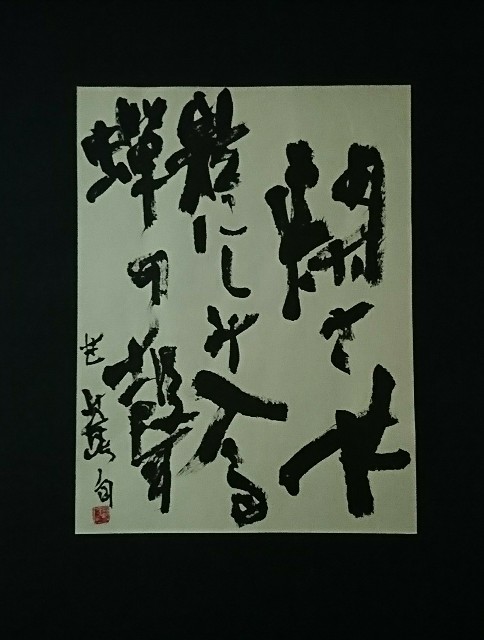 閑さや
巖にしみ入る
蝉の聲
芭蕉句